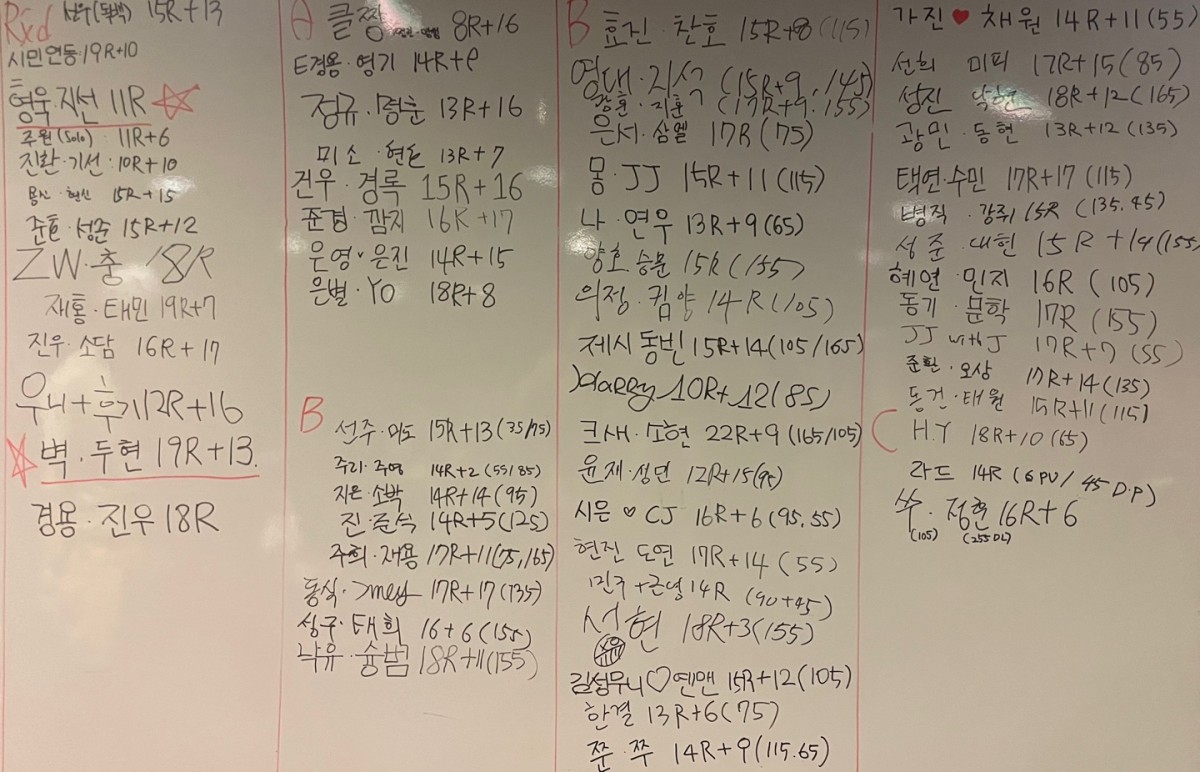 Rxd 선우(동백) 15R+13
시민연동 19R+10
형욱·지선 11R
주원(Solo) 11R+6
진환·기선 : 10R+10
용신·현신 15R+15
준호·성준 15R+12
ZW·충 18R
재홍·태민 19R+7
진우·소담 16R+17
우니+후기 12R+16
벽·두현 19R+13.
경용·진우 18R
A 클짱 8R+16
E경용·영기 14R+9
정규·명훈 13R+16
미소·현도 13R+7
건우·경록 15R+16
준경·깜지 16R+17
은영·은진 14R+15
은별·YO 18R+8
B 선주·미도 15R+13 (35/75)
주리·주영 14R+2 (55/85)
지은·소박 14R+14 (95)
진·준식 14R+5 (125)
주희·재용 17R+11 (75,165)
동식·Jmes 17R+17 (135)
싱구·태희 16+6 (155)
낙유·슝범 18R+11 (155)
B 효진·찬호 15R+8 (115)
영대·지석 (15R+9, 145)
강훈·지훈 (17R+9·155)
은서·삼멜 17R (75)
몽·JJ 15R+11 (115)
나·연우 13R+9 (65)
양호 승문 15R (155)
의정·킴양 14R (105)
제시 동빈 15R+14 (105/165)
Harry 10R+12 (85)
크새·소현 22R+9 (165/105)
윤재·성민 12R+15 (95)
시은 ♡ CJ 16R+6 (95.55)
현진 도연 17R+14 (55)
민주+근영 14R (90+45)
성현 18R+3 (155)
김성무니♡옌맨 15R+12 (105)
한결 13R+6 (75)
쭌·쭈 14R+9 (115.65)
가진 ♥ 채원 14R+11 (55)
선희 미피 17R+15 (85)
성진 낙현 18R+12 (165)
광민·동현 13R+12 (135)
택연·수민 17R+17 (115)
병직·강쥐 15R (135.45)
성준·대현 15R+19 (155)
혜연·민지 16R (105)
동기·문학 17R (155)
JJ with J 17R+7 (55)
준환·오상 17R+14 (135)
동건·태원 15R+11 (115)
C H.Y 18R+10 (65)
라드 14R (6PU/45 D.P)
쑤·정훈 16R+6
(105) (255DL)